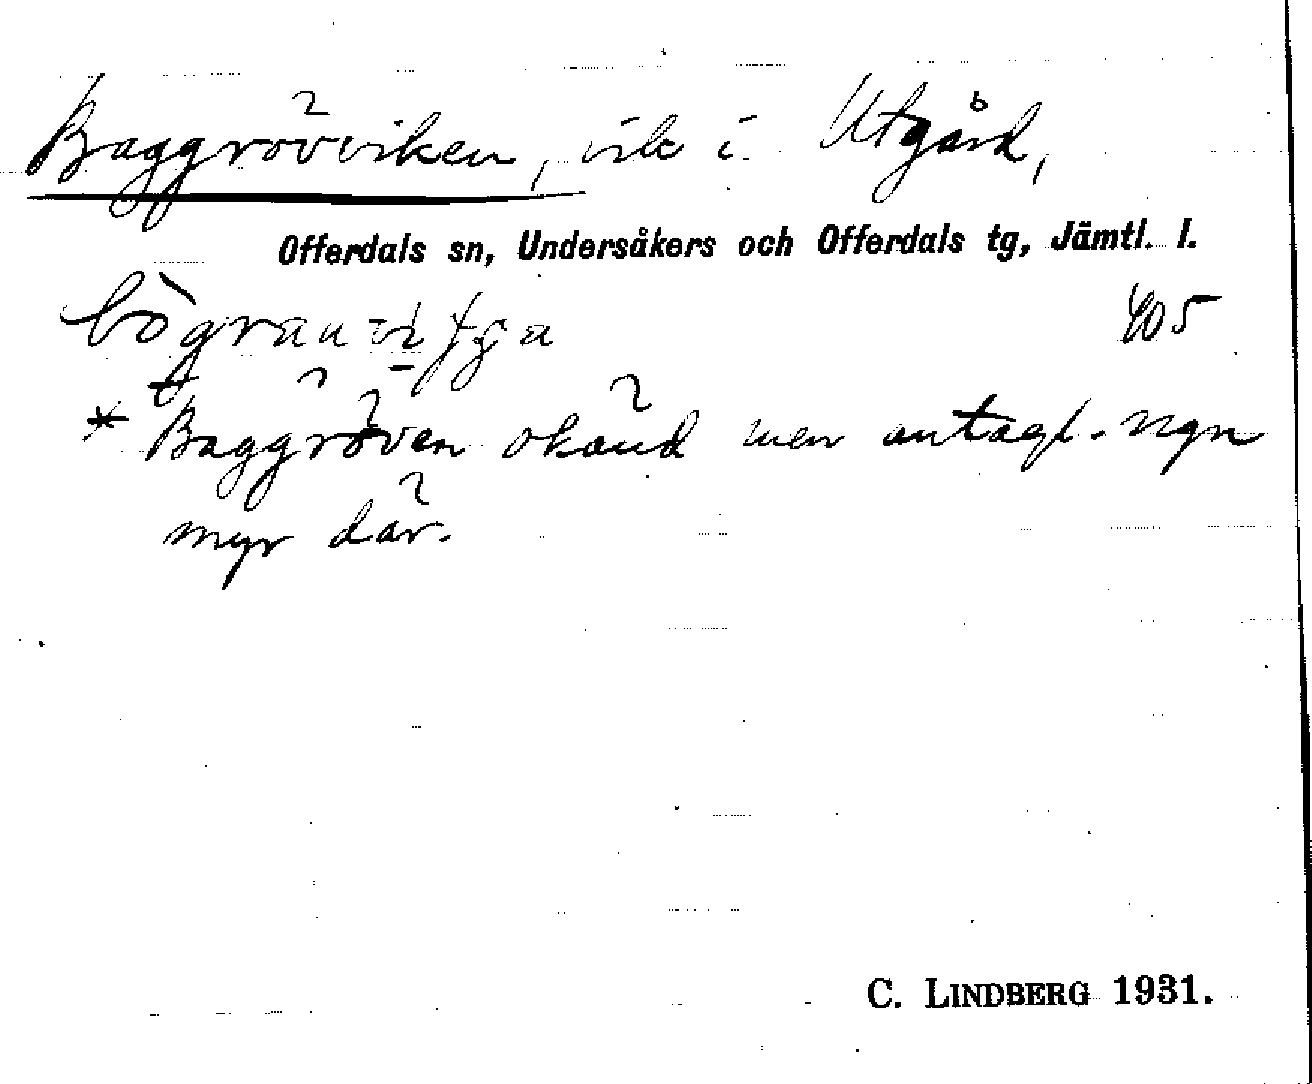 Baggrövviken, vik i Utgård,
Offerdals sn, Undersåkers och Offerdals tg, Jämtl. l.
405
* Baggröven okänd men antagl. ngn
myr där.
C. LINDBERG 1931.